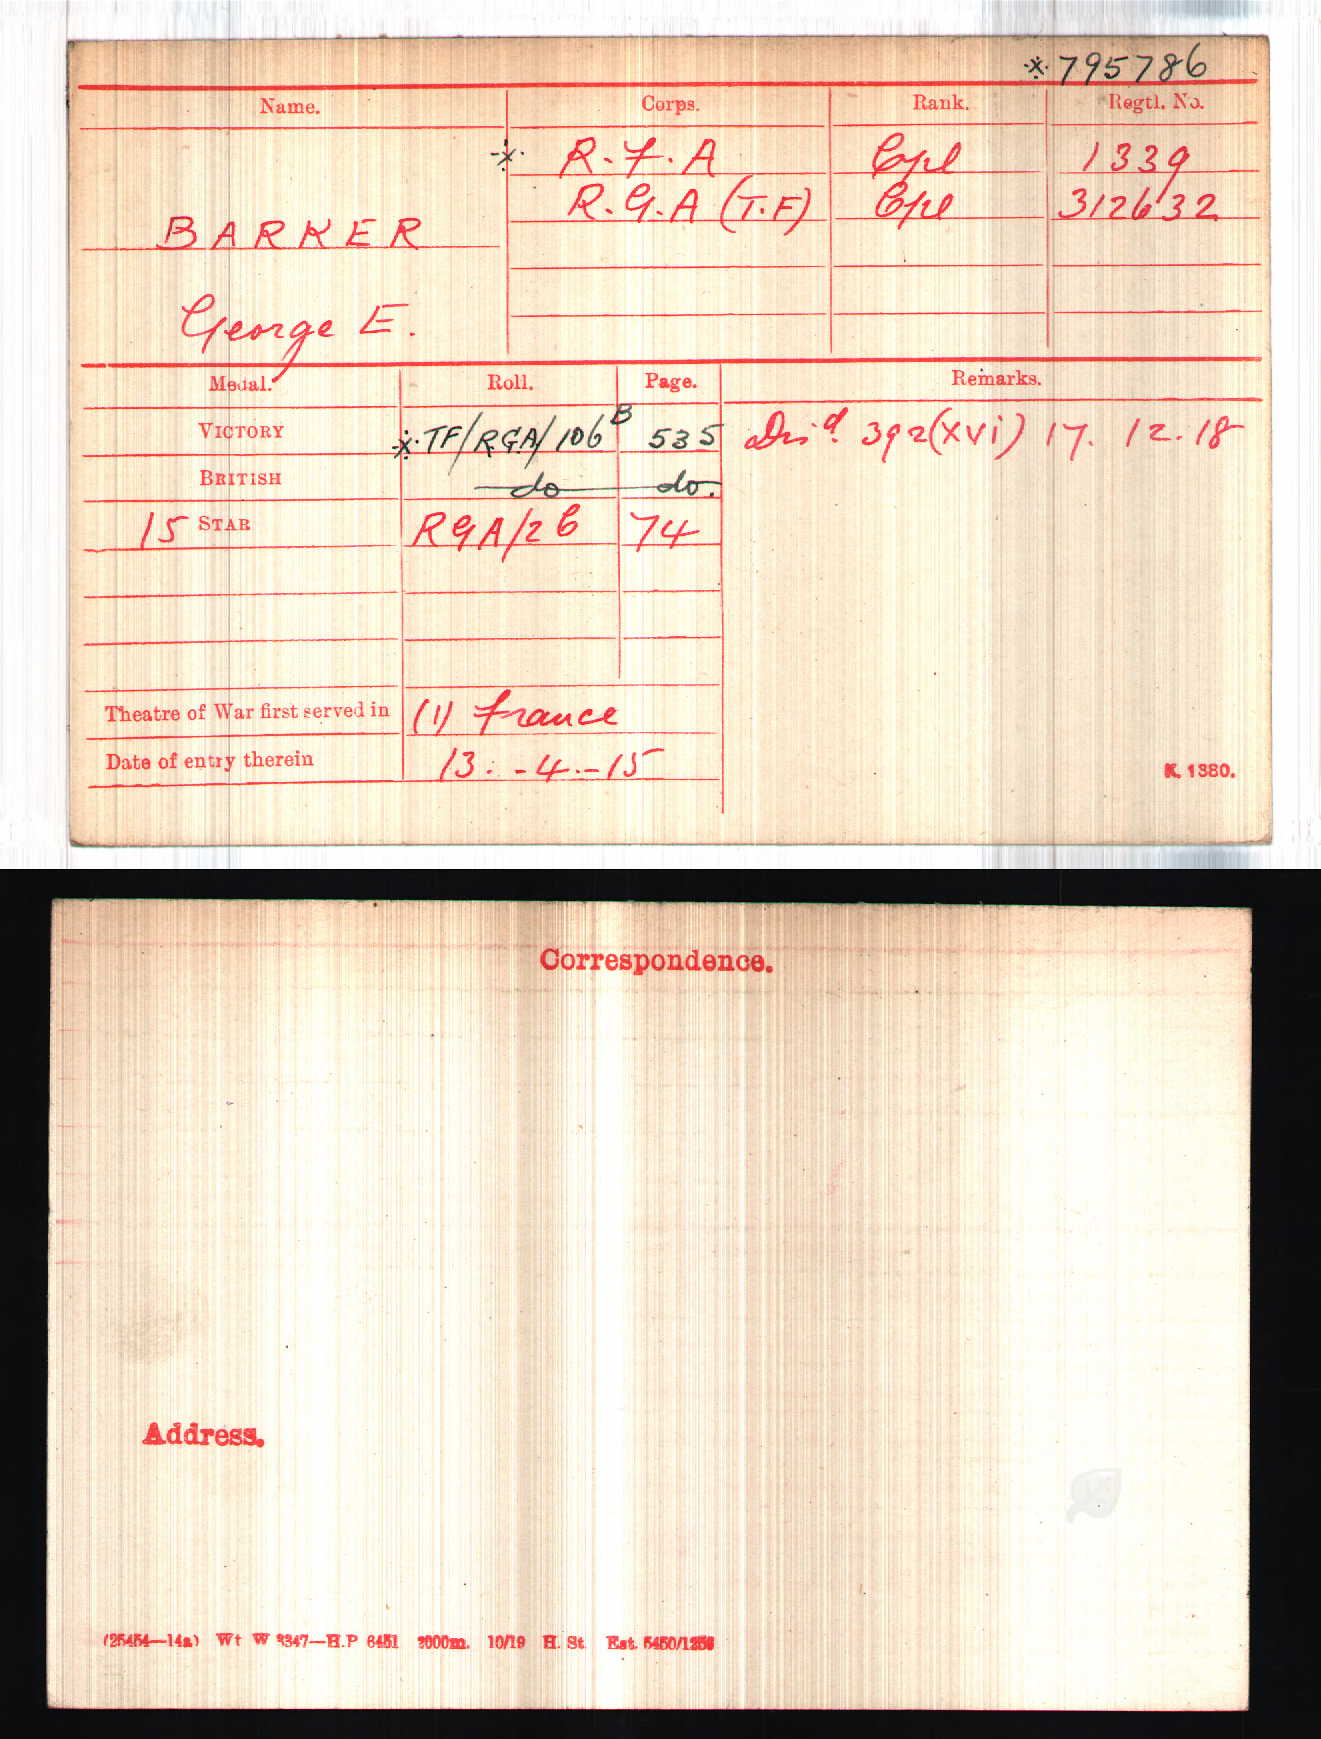 ※ 795786
Name. Corps. Rank. Regtl. No.
※ R.F.A Cpl 1339
BARKER R.G.A (T.F) Cpl 312632
George E.
Medal. Roll. Page. Remarks.
VICTORY ※ TF/RGA/106B 535 Disd. 392(xvi) 17. 12. 18
BRITISH do do.
15 STAR RGA/2B 74
Theatre of War first served in (1) France
Date of entry therein 13. - 4. - 15
K. 1380.
Correspondence.
Address.
(25454—14a) Wt W 3347—H.P 6451 2000m. 10/19 H. St. Est.